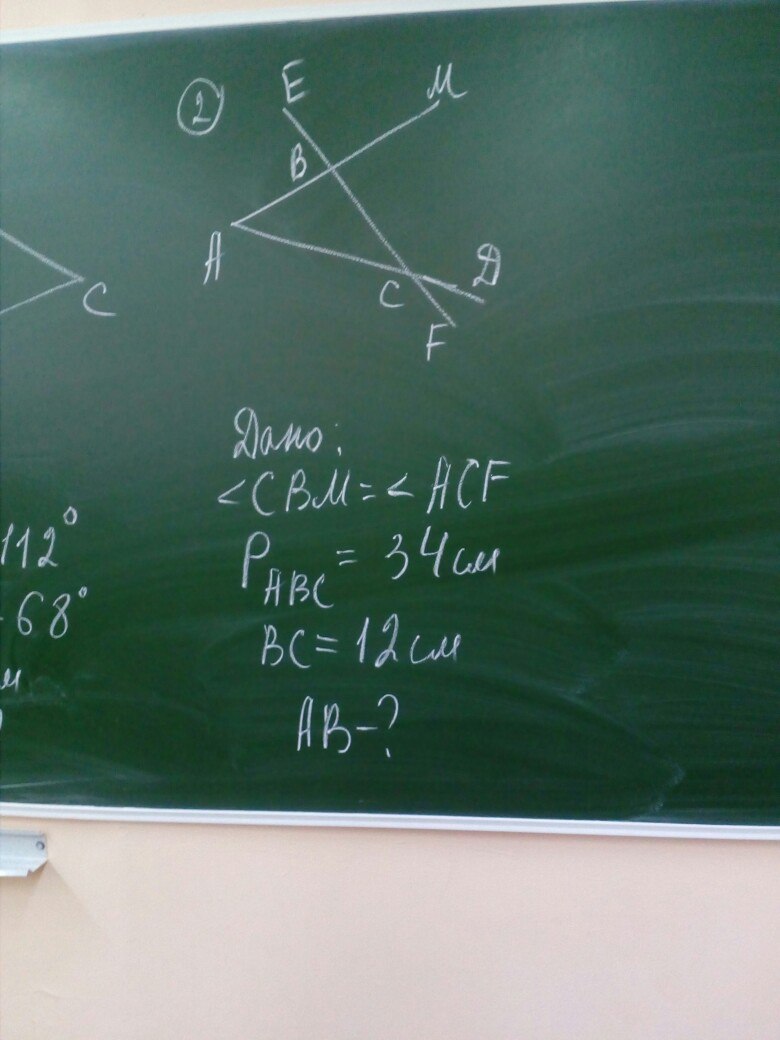 2
E
M
B
A
C
D
C
F
Дано:
<CBM = < ACF
112°
P ABC = 34 см
68°
BC = 12 см
AB - ?